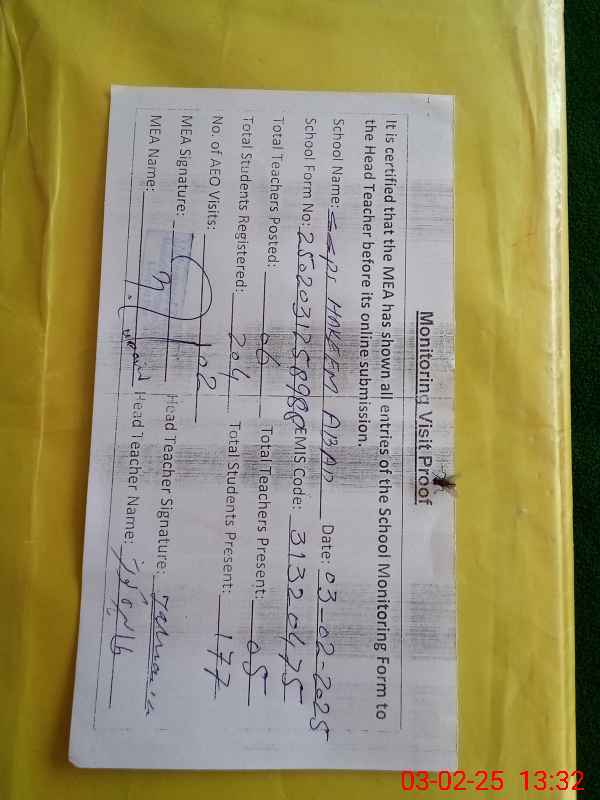 Monitoring Visit Proof
It is certified that the MEA has shown all entries of the School Monitoring Form to
the Head Teacher before its online submission.
School Name: GGPS HAKEEM ABAD Date: 03-02-2025
School Form No: EMIS Code: 31320475
Total Teachers Posted: 06 Total Teachers Present: 05
Total Students Registered: 204 Total Students Present: 177
No. of AEO Visits: 02
MEA Signature: Head Teacher Signature:
MEA Name: Head Teacher Name:
03-02-25 13:32